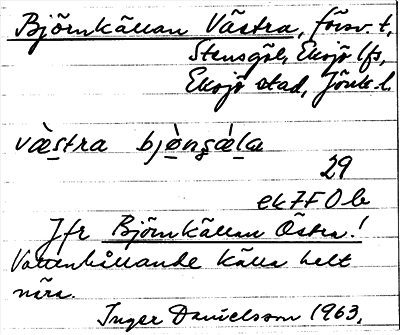 Björnkällan Västra, försv. t.
Stensgöl, Eksjö lfs,
Eksjö stad, Jönk. l.
væ̀stra bjö̀nsæ̀la
29
ek 7F 0 b
Jfr Björnkällan Östra!
Vattenhållande källa helt
nära.
Inger Danielsson 1963.